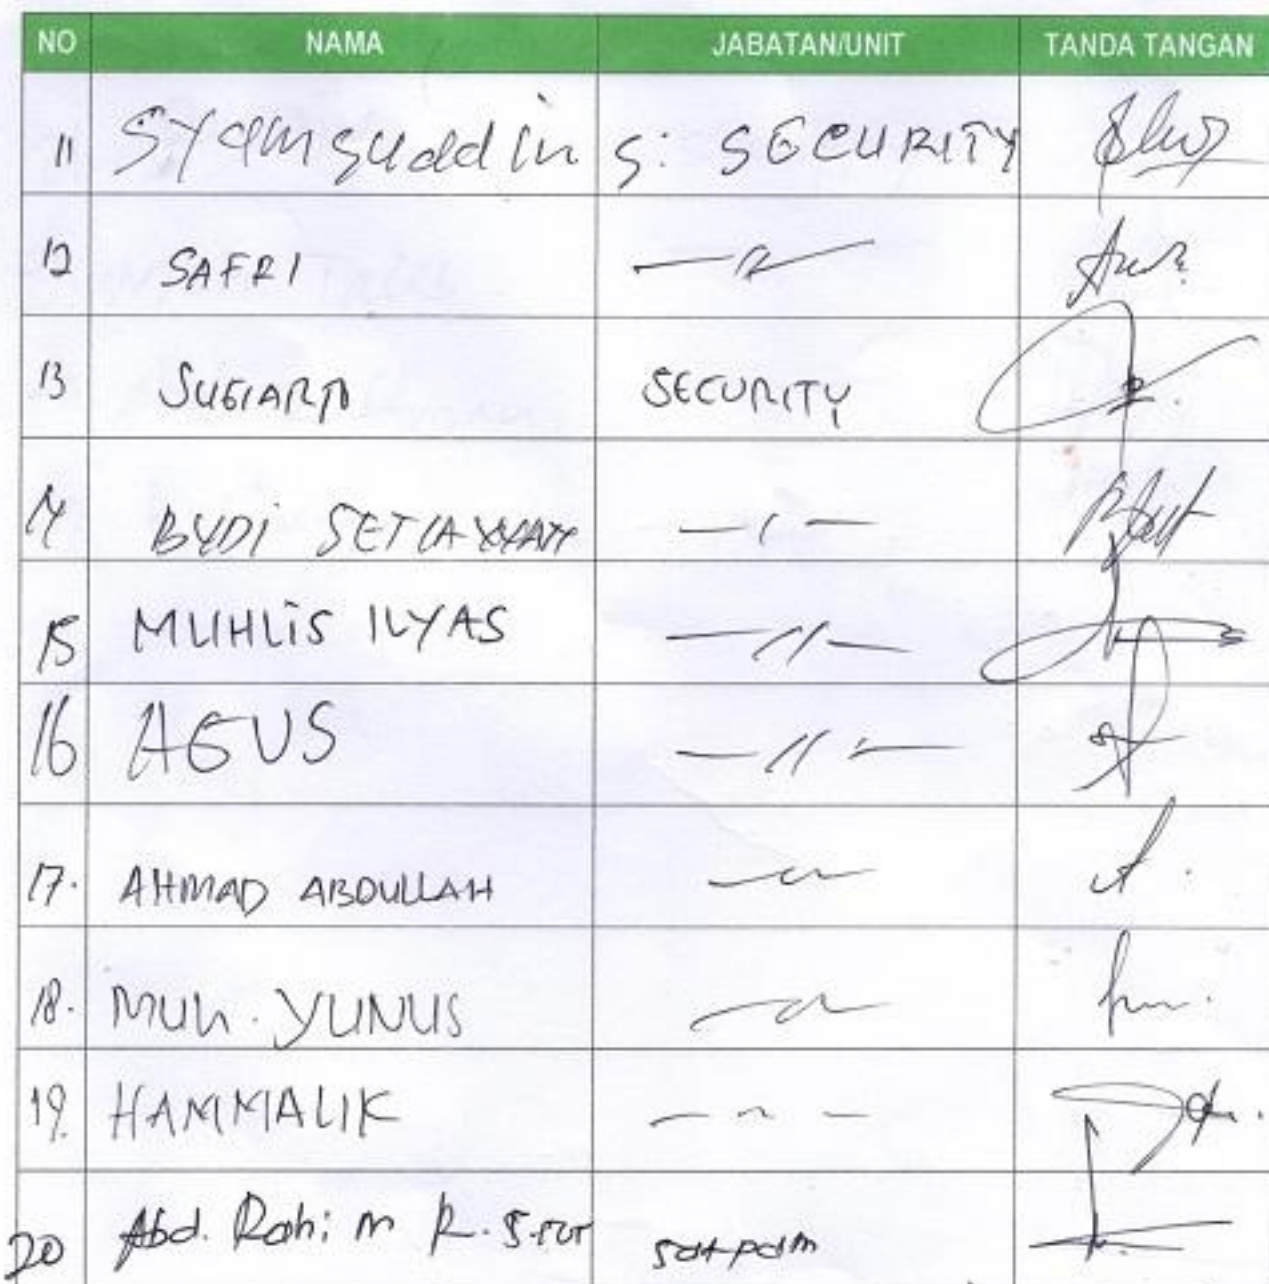 NO NAMA JABATAN/UNIT TANDA TANGAN
11 Syamsuddin S: SECURITY
12 SAFRI
13 SUGIARTO SECURITY
14 BUDI SETIAWAN
15 MUHLIS ILYAS
16 AGUS
17. AHMAD ABDULLAH
18. MUH. YUNUS
19. HAMMALIK
20 Abd. Rahim R. satpam